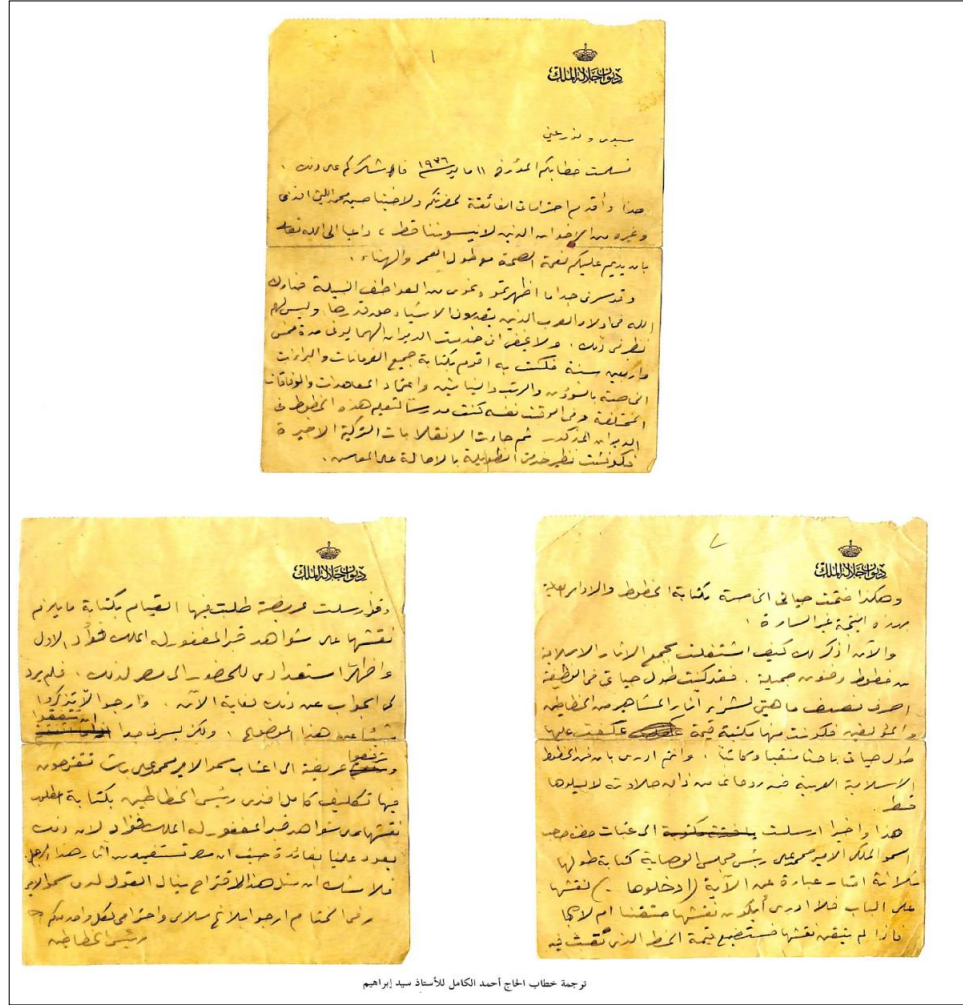 ١
ديوان جلالة الملك
سيدى وقرة عينى
تسلمت خطابكم المؤرخ ١١ مايو ١٩٣٦ فأشكركم على ذلك .
هذا وأقدم احتراماتى الفائقة لحضرتكم ولأخينا محمد افندى
وغيره من الإخوان الذين لا ينسوننا قط ، داعيا الى الله تعالى
بأن يديم عليكم نعمة الصحة وطول العمر والهناء .
وقد سرنى جدا ما اظهرتموه نحوى من العواطف النبيلة فبارك
الله فى أولاد العرب الذين يقدرون الأشياء حق قدرها وليس لهم
نظير فى ذلك . ولا يخفى انى خدمت الديوان الهمايونى مدة خمس
وأربعين سنة فكنت به أقوم بكتابة جميع الفرمانات والبراءات
الخاصة بالشؤون والرتب والنياشين واعتماد المعاهدات والوفاقات
المختلفة وفى الوقت نفسه كنت مدرسا لتعليم هذه الخطوط فى
الديوان المذكور ثم جاءت الانقلابات التركية الأخيرة
فكوفئت نظير خدمتى الطويلة بالاحالة على المعاش .
٢
ديوان جلالة الملك
وهكذا ختمت حياتى فى كتابة الخطوط
بهذه النتيجة غير السارة .
والآن أذكر لك كيف اشتغلت بجمع الآثار الاسلامية
من خطوط وفنون جميلة . فقد كنت طول حياتى فى الوظيفة
أصرف نصف ماهيتى لشراء آثار المشاهير من الخطاطين
والمؤلفين فكونت منها مكتبة قيمة عكفت عليها
طول حياتى باحثا منقبا وكاتبا ، وانى أدرى بأن فن الخطوط
الاسلامية العربية فن روحانى من ذاق حلاوته لا يسلوها
قط .
هذا وأخيرا أرسلت الى عتبات حضرة صاحب
السمو الملكى الأمير محمد على رئيس مجلس الوصاية كتابة طولها
ثلاثة أمتار عبارة عن الآية (ادخلوها ..) لنقشها
على الباب فلا أدرى أيكون نقشها متقنا أم لا
فاذا لم يتقن نقشها فستضيع قيمة الخط الذى تعبت فيه
ديوان جلالة الملك
وقد أرسلت عريضة طلبت فيها القيام بكتابة ما يلزم
نقشها على شواهد قبر المغفور له الملك فؤاد الأول
وأظهرت استعدادى للحضور الى مصر لذلك ، فلم يرد
لى الجواب عن ذلك لغاية الآن . وأرجو ألا تذكروا
هذا الموضوع ، ولكن يسرنى جدا ان تتفقوا
وترفعوا عريضة الى أعتاب سمو الأمير محمد على باشا تقترحون
فيها تكليف كامل افندى رئيس الخطاطين بكتابة المطلوب
نقشها على شواهد قبر المغفور له الملك فؤاد لأن ذلك
يعود علينا بفائدة حيث ان مصر تستفيد من آثار هذا الرجل
فلا شك ان مثل هذا الاقتراح ينال القبول لدى سمو الأمير
وفى الختام أرجو ابلاغ سلامى واحترامى لكل واحد منكم
رئيس الخطاطين
ترجمة خطاب الحاج أحمد الكامل للأستاذ سيد إبراهيم